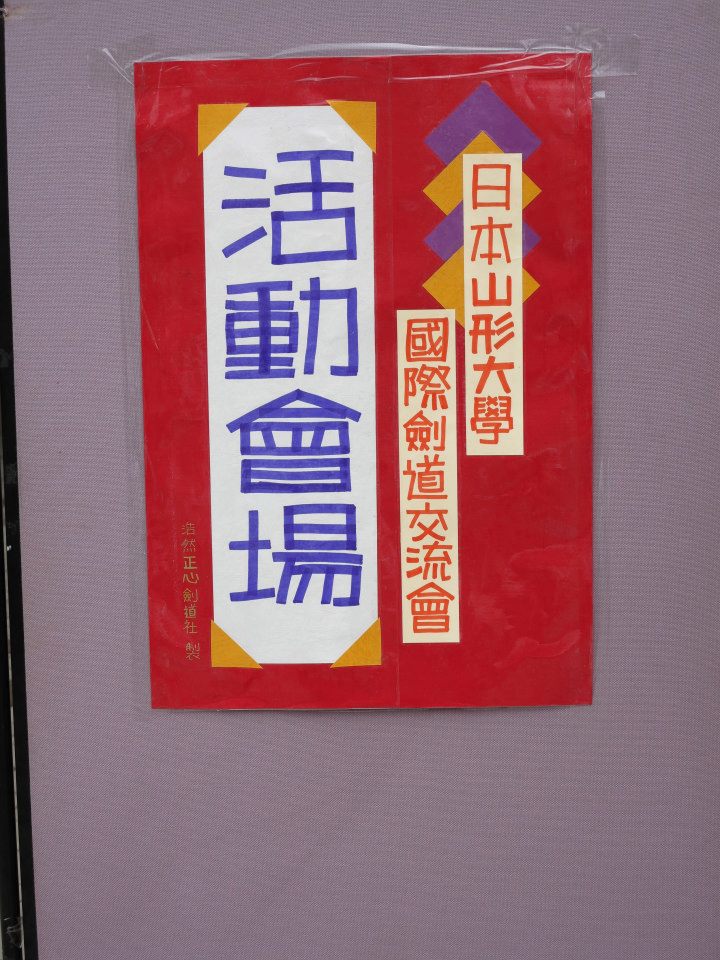 日本山形大學
國際劍道交流會
活動會場
浩然正心劍道社 製